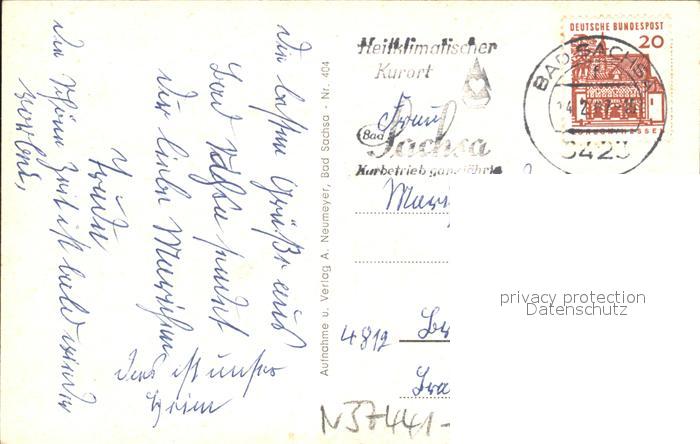 Die besten Grüße aus
Bad Sachsa sendet
Dir liebe
Trude
Die schöne Zeit ist bald wieder
vorbei,
Das ist unser
Heim
Aufnahme u. Verlag A. Neumeyer, Bad Sachsa - Nr. 404
Heilklimatischer
Kurort
Bad
Sachsa
Kurbetrieb ganzjährig
DEUTSCHE BUNDESPOST
20
BAD SACHSA
3423
Frau
4812
N37441-
privacy protection
Datenschutz